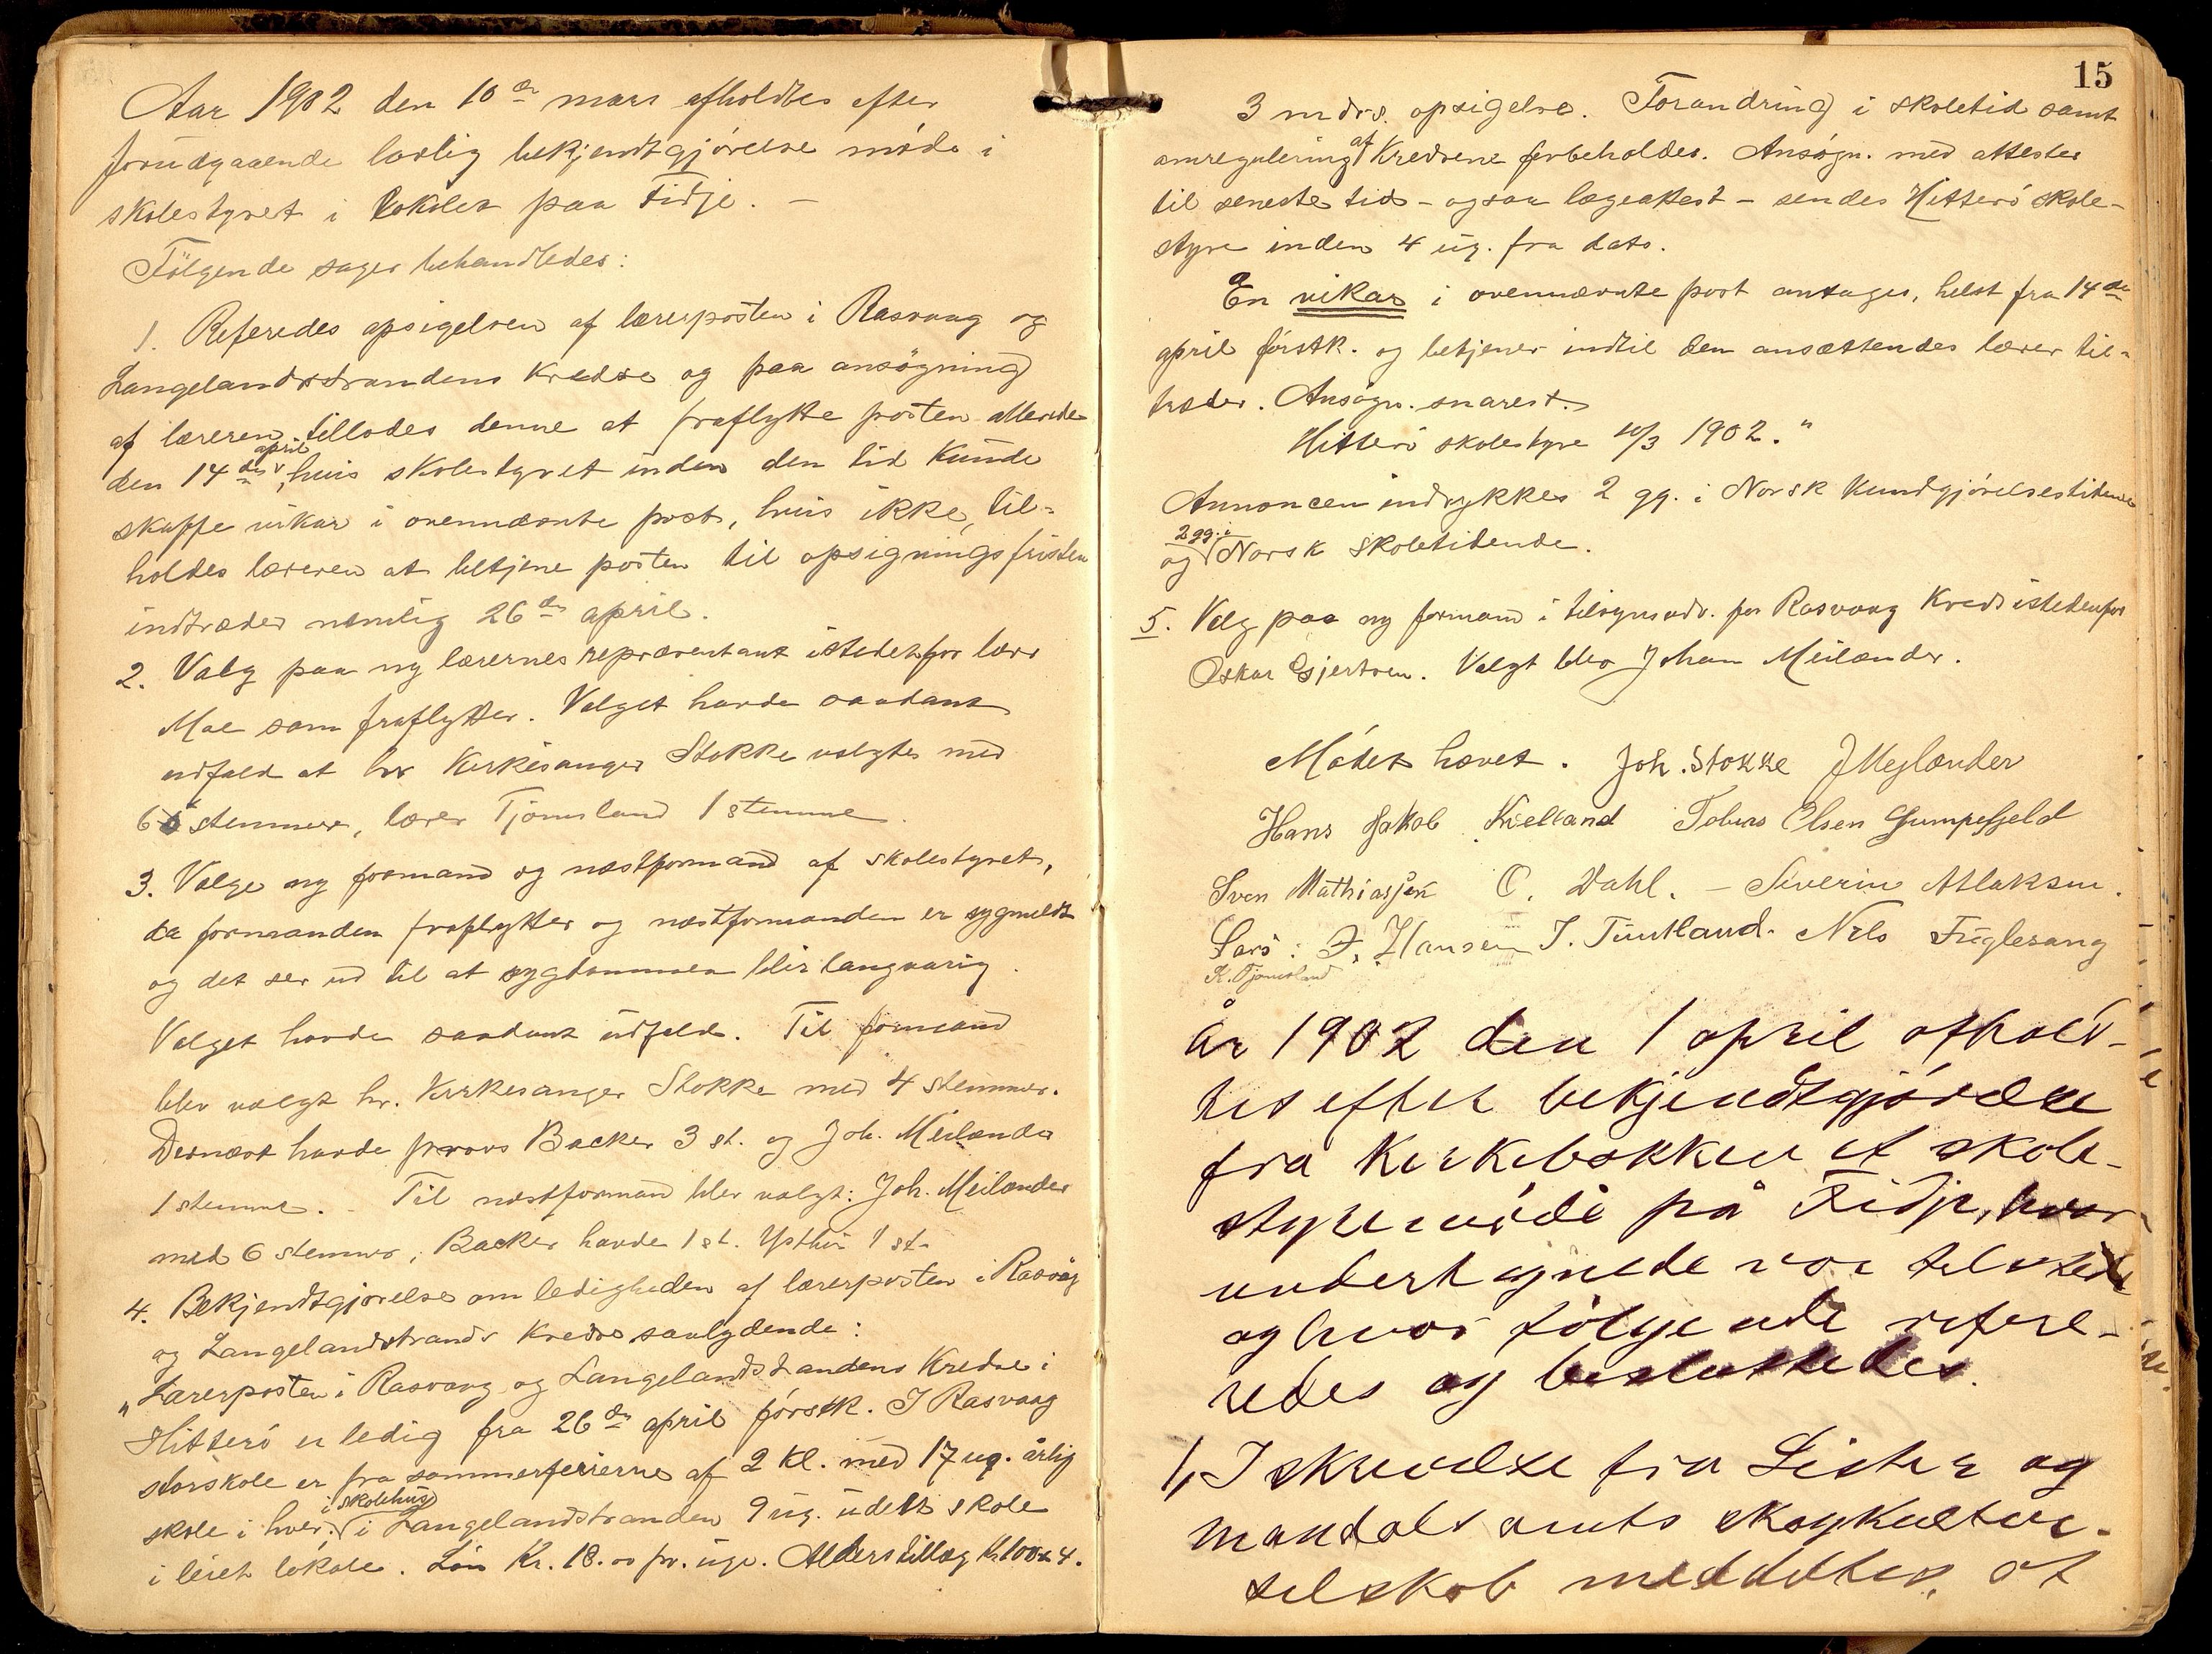 Aar 1902 den 10de mars afholdtes efter
forudgaaende lovlig bekjendtgjørelse møde i
skolestyret i lokalet paa Fidje. –
Følgende sager behandledes:
1. Referedes opsigelsen af lærerposten i Rasvaag og
Langelandsstrandens Kredse og paa ansøgning
af læreren tillodes denne at fraflytte posten allerede
den 14de april, hvis skolestyret inden den tid kunde
skaffe vikar i ovennævnte post, hvis ikke, til-
holdes læreren at betjene posten til opsigningsfristen
indtræder nemlig 26de april.
2. Valg paa ny lærernes repræsentant istedetfor lærer
Moe som fraflytter. Valget havde saadant
udfald at hr Kirkesanger Stokke valgtes med
6 stemmer, lærer Tjomsland 1 stemme.
3. Valge ny formand og næstformand af skolestyret,
da formanden fraflytter og næstformanden er sygmeldt
og det ser ud til at sygdommen blir langvarig.
Valget havde saadant udfald. Til formand
blev valgt hr. Kirkesanger Stokke med 4 stemmer.
Dernæst havde provs Backer 3 st. og Joh. Meilænder
1 stemme. – Til næstformand blev valgt: Joh. Meilænder
med 6 stemmer, Backer havde 1 st. 1 st.
4. Bekjendtgjørelse om ledigheden af lærerposten i Rasvåg
og Langelandstrands Kredse saalydende:
„Lærerposten i Rasvaag og Langelandsstrandens Kredse i
Hitterø er ledig fra 26de april førstk. I Rasvaag
storskole er fra sommerferierne af 2 kl. med 17 ug. årlig
skole i hver, i skolehus, i Langelandstranden 9 ug. udelt skole
i leiet lokale. Løn Kr. 18.00 pr. uge. Alderstillæg Kr 100 x 4.
15
3 mdrs. opsigelse. Forandring i skoletid samt
omregulering af Kredsene forbeholdes. Ansøgn. med attester
til seneste tid – ogsaa lægeattest – sendes Hitterø skole-
styre inden 4 ug. fra dato.
En vikar i ovennævnte post antages, helst fra 14de
april førstk. og betjener indtil den ansættendes lærer til-
træder. Ansøgn. snarest.
Hitterø skolestyre 10/3 1902."
Annoncen indrykkes 2 gg. i Norsk Kundgjørelsestidende
og 2 gg. i Norsk Skoletidende.
5. Valg paa ny formand i tilsynsudv. for Rasvaag Kreds istedenfor
Oskar Gjertsen. Valgt blev Johan Meilænder.
Mødet hævet. Joh. Stokke J Meylænder
Hans Jakob Kielland Tobias Olsen Gumpefjeld
Sven Mathiassen O. Dahl. – Severin Atlaksen.
Lars: F. Hansen T. Tuntland. Nils Fuglesang
K. Tjomsland
År 1902 den 1 april afhold-
tes efter bekjendtgjørelse
fra Kirkebakken et skole-
styremøde på Fidje, hvor
undertegnede var tilstede
og hvor følgende refere-
redes og besluttedes.
1, I skrivelse fra Lister og
Mandals amts skogkultur-
selskab meddeltes, at